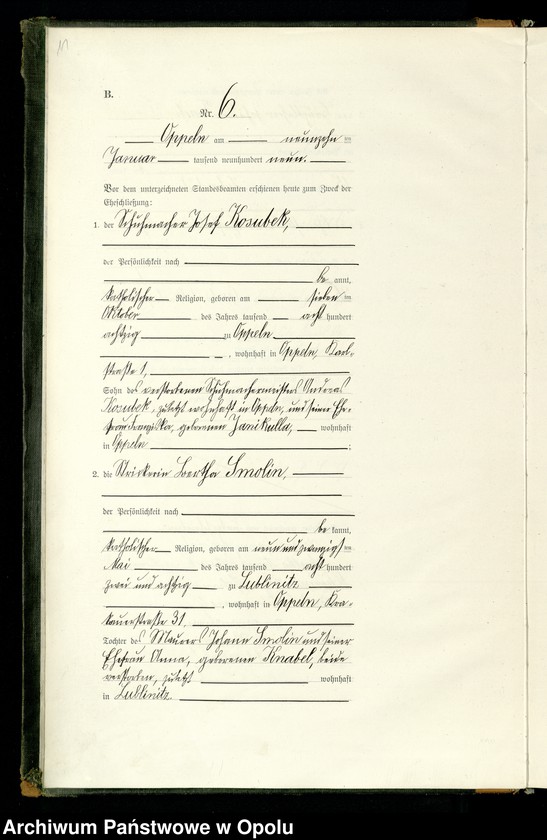 B.
Nr. 6.
Oppeln am neunzehn ten
Januar tausend neunhundert neun.
Vor dem unterzeichneten Standesbeamten erschienen heute zum Zweck der
Eheschließung:
1. der Schuhmacher Josef Kosubek,
der Persönlichkeit nach
be kannt,
katholischer Religion, geboren am sieben ten
Oktober des Jahres tausend acht hundert
achtzig zu Oppeln
, wohnhaft in Oppeln, Karl-
straße 1,
Sohn des verstorbenen Schuhmachermeisters Andreas
Kosubek, zuletzt wohnhaft in Oppeln, und seiner Ehe-
frau Franziska, geborenen Janikulla, wohnhaft
in Oppeln ;
2. die Strickerin Bertha Smolin,
der Persönlichkeit nach
be kannt,
katholischer Religion, geboren am neunundzwanzigs ten
Mai des Jahres tausend acht hundert
zwei und achtzig zu Lublinitz
, wohnhaft in Oppeln, Kra-
kauerstraße 31.
Tochter des Maurers Johann Smolin und seiner
Ehefrau Anna, geborenen Knabel, beide
verstorben, zuletzt wohnhaft
in Lublinitz
Archiwum Państwowe w Opolu